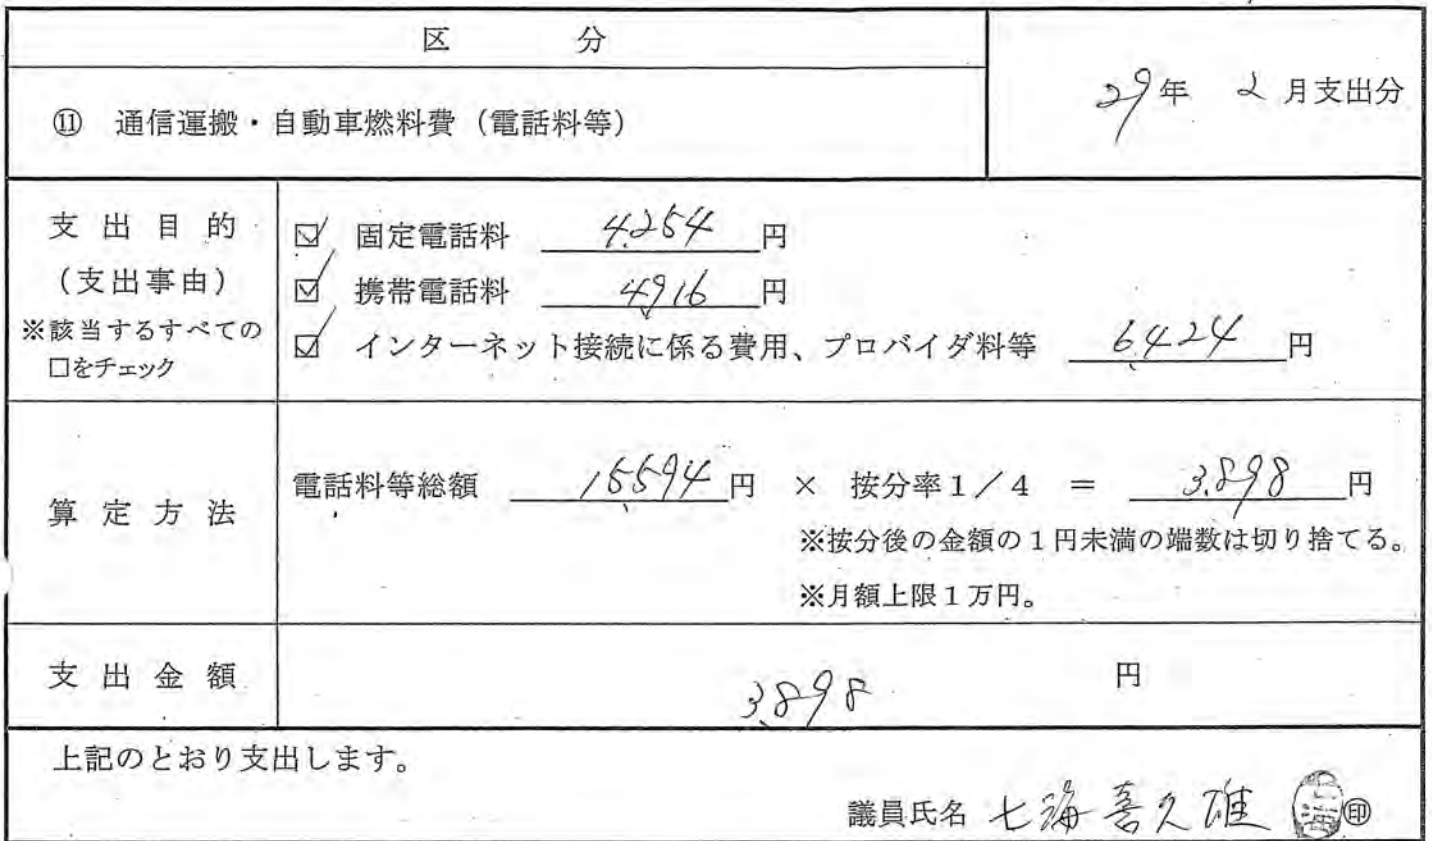 区 分
⑪ 通信運搬・自動車燃料費（電話料等）
29年 2月支出分
支出目的
（支出事由）
※該当するすべての
□をチェック
☑ 固定電話料 4,254円
☑ 携帯電話料 4,916円
☑ インターネット接続に係る費用、プロバイダ料等 6,424円
算定方法
電話料等総額 15,594円 × 按分率1／4 ＝ 3,898円
※按分後の金額の1円未満の端数は切り捨てる。
※月額上限1万円。
支出金額
3,898 円
上記のとおり支出します。
議員氏名 七海喜久雄 ㊞